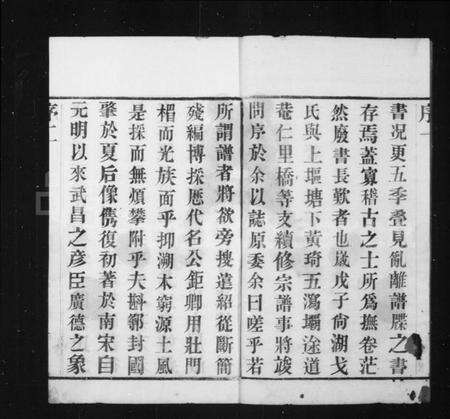 序一
書况更五季疊見亂離譜牒之書
存焉蓋寡稽古之士所爲撫卷茫
然廢書長歎者也歲戊子尙湖戈
氏與上堰塘下黃琦五瀉壩途道
菴仁里橋等支續修宗譜事將竣
問序於余以誌原委余曰嗟乎若
所謂譜者將欲旁搜遠紹從斷簡
殘編博採歷代名公鉅卿用壯門
楣而光族面乎抑溯木窮源土風
是採而無煩攀附乎夫斟鄩封國
肇於夏后像儁復初著於南宋自
元明以來武昌之彥臣廣德之象
序二